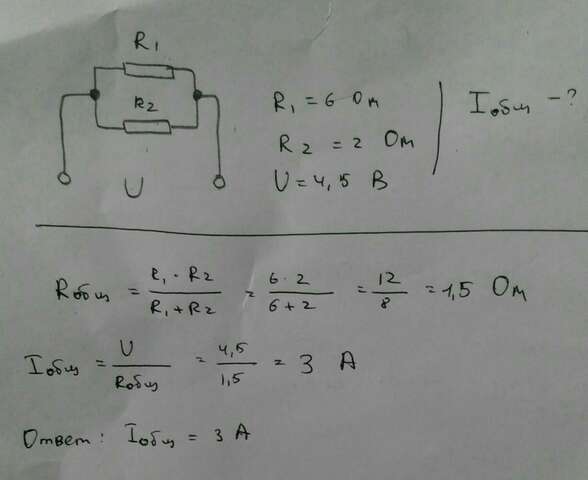 R₁
R₂
U
R₁ = 6 Ом
R₂ = 2 Ом
U = 4,5 В
Iобщ - ?
Rобщ = R₁ · R₂ / R₁ + R₂ = 6 · 2 / 6 + 2 = 12 / 8 = 1,5 Ом
Iобщ = U / Rобщ = 4,5 / 1,5 = 3 А
Ответ: Iобщ = 3 А